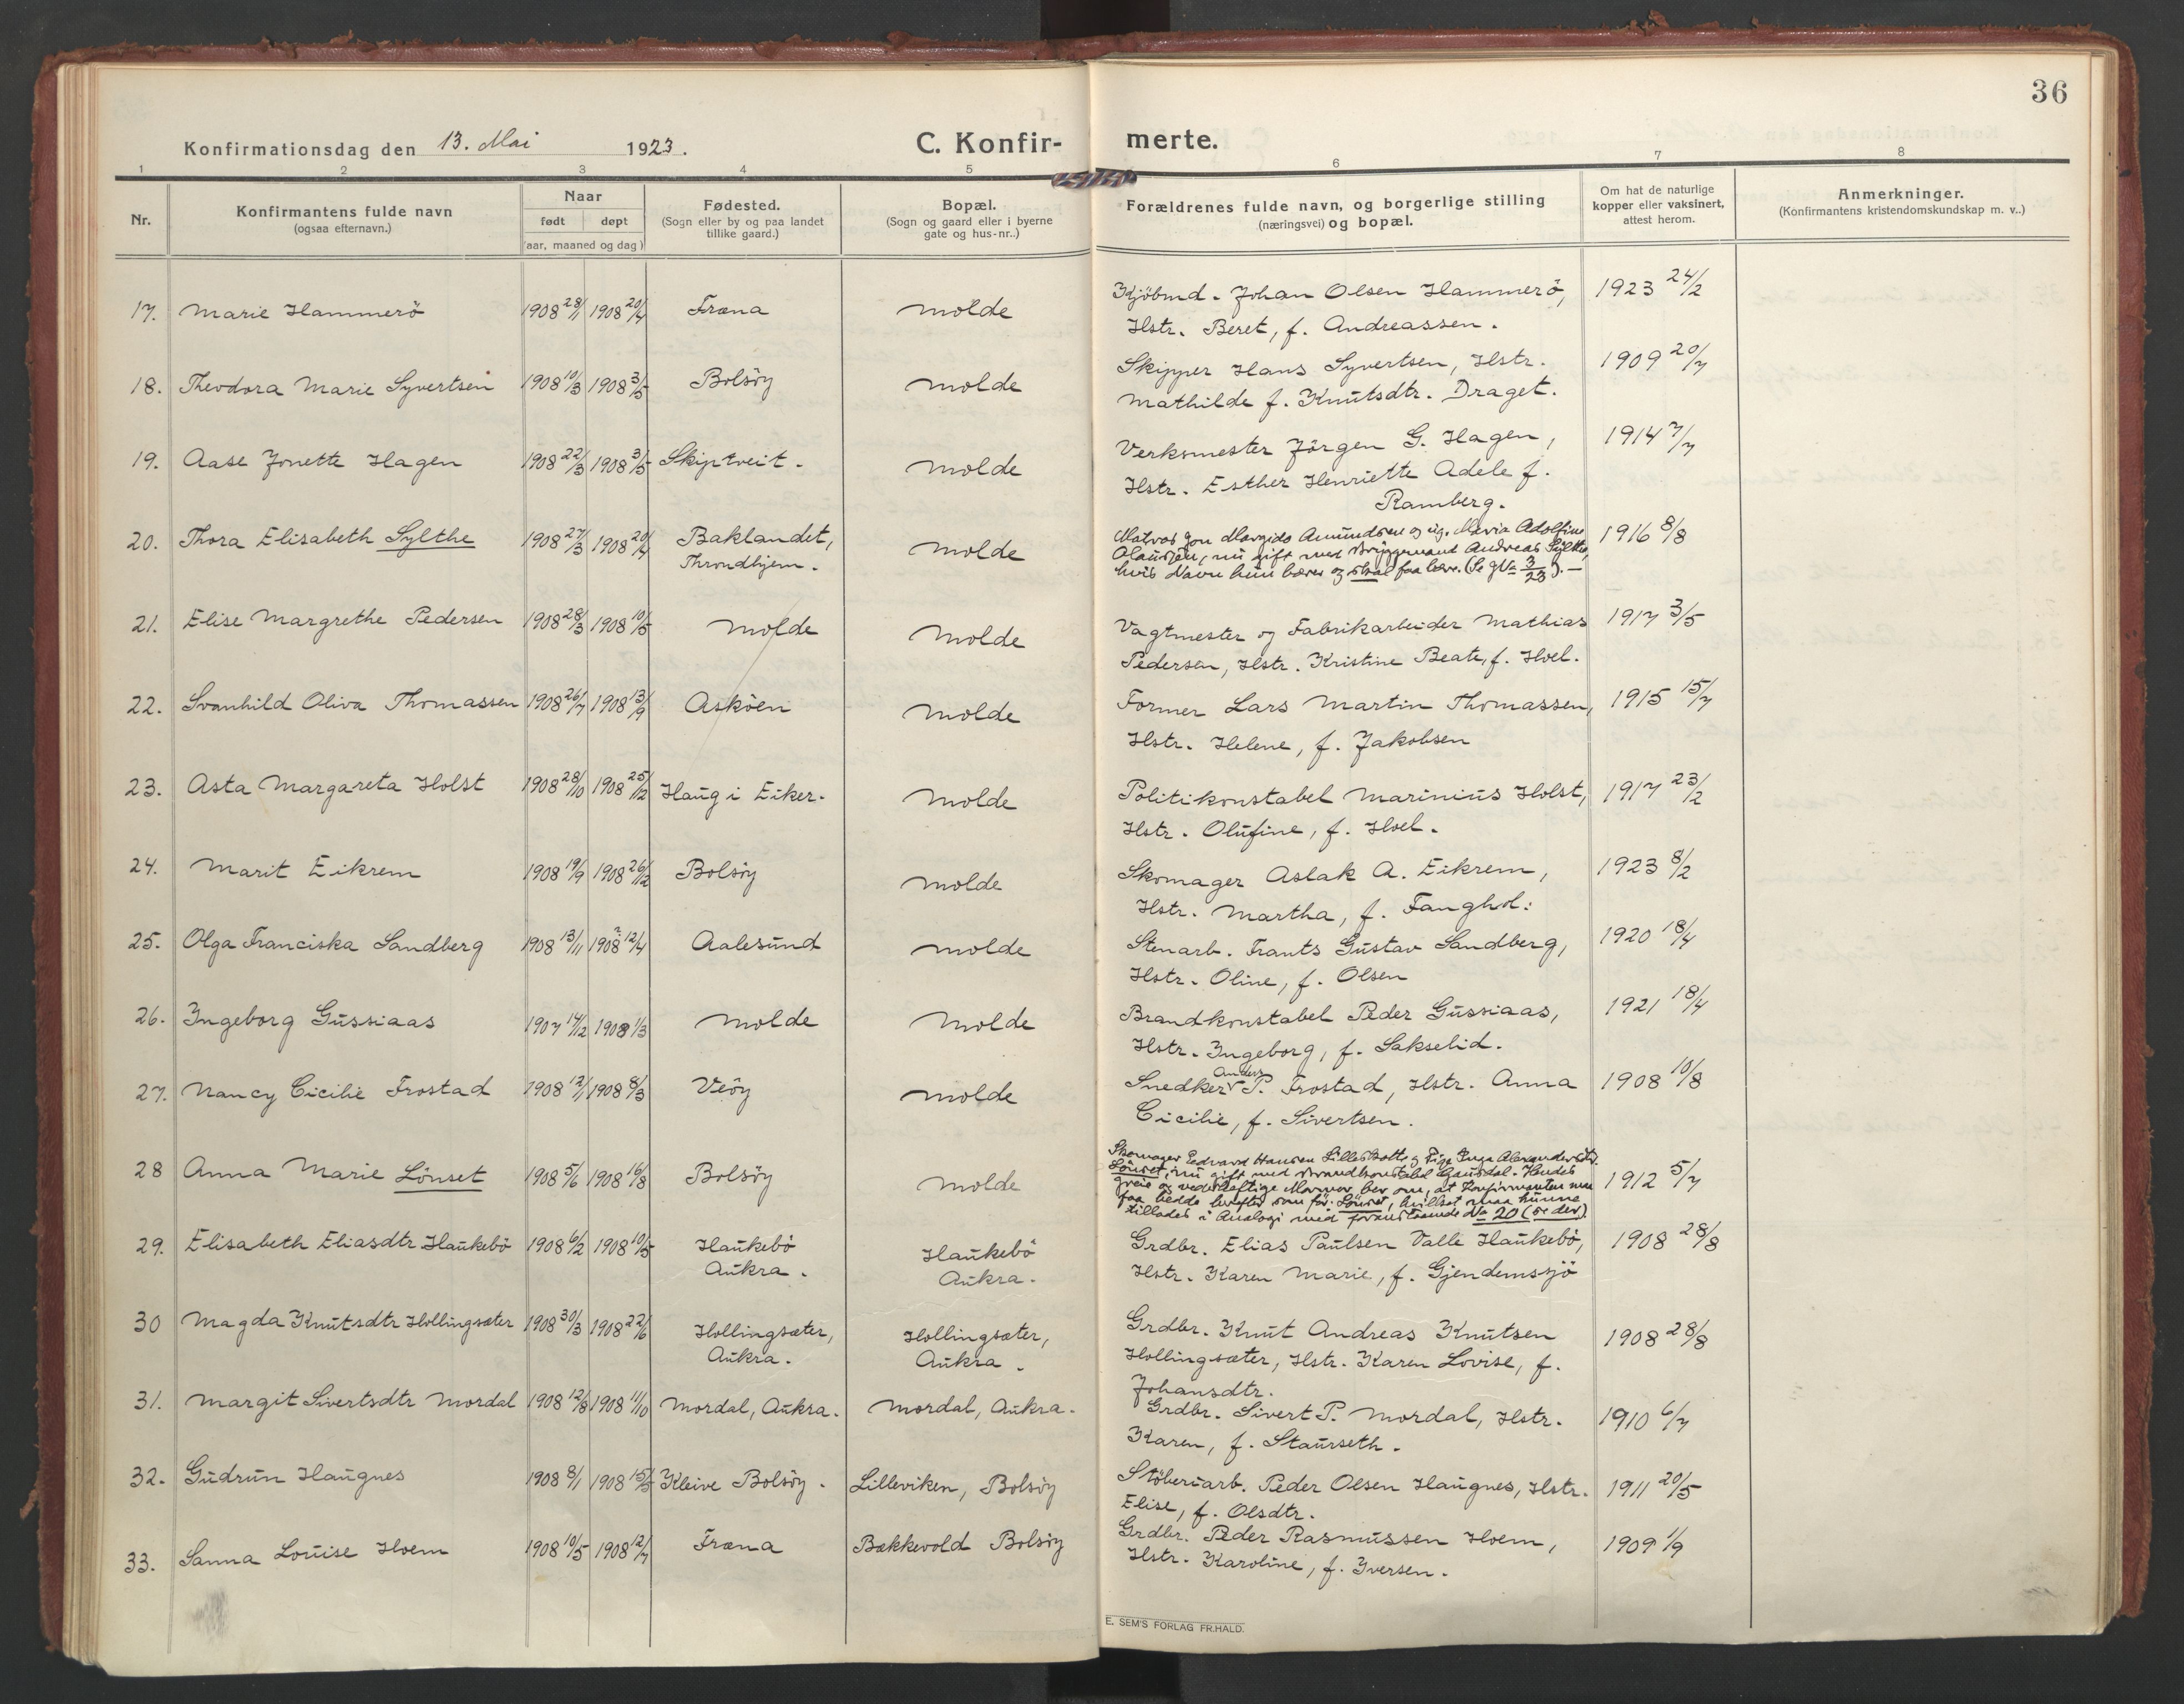 36
Konfirmationsdag den 13. Mai 1923.
C. Konfir-
merte.
1 2 3 4 5 6 7 8
Nr.
Konfirmantens fulde navn
(ogsaa efternavn.)
Naar
født døpt
(aar, maaned og dag)
Fødested.
(Sogn eller by og paa landet
tillike gaard.)
Bopæl.
(Sogn og gaard eller i byerne
gate og hus-nr..)
Forældrenes fulde navn, og borgerlige stilling
(næringsvei) og bopæl.
Om hat de naturlige
kopper eller vaksinert,
attest herom.
Anmerkninger.
(Konfirmantens kristendomskundskap m. v..)
17. Marie Hammerö 1908 28/1 1908 20/4 Fræna Molde Kjöbmd. Johan Olsen Hammerö, 1923 24/2
Hstr. Beret, f. Andreassen.
18. Theodora Marie Syvertsen 1908 10/3 1908 3/5 Bolsöy Molde Skipper Hans Syvertsen, Hstr. 1909 20/7
Mathilde f. Knutsdtr. Draget.
19. Aase Jonette Hagen 1908 22/3 1908 3/5 Skiptveit. Molde Verksmester Jörgen G. Hagen, 1914 7/7
Hstr. Esther Henriette Adele f.
Ramberg.
20. Thora Elisabeth Sylthe 1908 27/3 1908 20/4 Baklandet, Molde Matros Jon Margido Amundsen og ug. Maria Adolfine 1916 8/8
Throndhjem. Olausen, nu gift med Bryggemand Andreas Sylthe,
hvis Navn hun bærer og skal faa bære. (Se gNo 3/23). —
21. Elise Margrethe Pedersen 1908 28/3 1908 10/5 Molde Molde Vagtmester og Fabrikarbeider Mathias 1917 3/5
Pedersen, Hstr. Kristine Beate, f. Hoel.
22. Svanhild Oliva Thomassen 1908 26/7 1908 13/9 Asköen Molde Former Lars Martin Thomassen, 1915 15/7
Hstr. Helene, f. Jakobsen
23. Asta Margareta Holst 1908 28/10 1908 25/12 Haug i Eiker. Molde Politikonstabel Marinius Holst, 1917 23/2
Hstr. Olufine, f. Hoel.
24. Marit Eikrem 1908 19/9 1908 26/12 Bolsöy Molde Skomager Aslak A. Eikrem, 1923 8/2
Hstr. Martha, f. Fanghol:
25. Olga Franciska Sandberg 1908 13/11 1908 ? 12/4 Aalesund Molde Stenarb. Frants Gustav Sandberg, 1920 18/4
Hstr. Oline, f. Olsen
26. Ingeborg Gussiaas 1907 14/12 1908 1/3 Molde Molde Brandkonstabel Peder Gussiaas, 1921 18/4
Hstr. Ingeborg, f. Sakselid.
27. Nancy Cicilie Frostad 1908 12/1 1908 8/3 Veöy Molde Snedker Anders P. Frostad, Hstr. Anna 1908 10/8
Cicilie, f. Sivertsen.
28 Anna Marie Lönset 1908 5/6 1908 16/8 Bolsöy Molde Skomager Edvard Hansen og Pige Inga Alexandersdtr. 1912 5/7
Lönset, nu gift med Brandkonstabel Gausdal. Hendes
greie og vederhæftige Mormor ber om, at Konfirmanten maa
faa hedde herefter som för: Lönset, hvilket maa kunne
tillades i Analogi med foranstaaende No 20 (se der).
29. Elisabeth Eliasdtr Haukebö 1908 6/2 1908 10/5 Haukebö Haukebö Grdbr. Elias Paulsen Valle Haukebö, 1908 28/8
Aukra. Aukra. Hstr. Karen Marie, f. Gjendemsjö
30 Magda Knutsdtr Hollingsæter 1908 30/3 1908 22/6 Hollingsæter, Hollingsæter, Grdbr. Knut Andreas Knutsen 1908 28/8
Aukra. Aukra. Hollingsæter, Hstr. Karen Lovise, f.
Johansdtr.
31. Margit Sivertsdtr Mordal 1908 12/8 1908 11/10 Mordal, Aukra. Mordal, Aukra. Grdbr. Sivert P. Mordal, Hstr. 1910 6/7
Karen, f. Staurseth.
32. Gudrun Haugnes 1908 8/1 1908 15/3 Kleive Bolsöy. Lilleviken, Bolsöy Stöberiarb. Peder Olsen Haugnes, Hstr. 1911 20/5
Elise, f. Olsdtr.
33. Sanna Louise Hoem 1908 10/5 1908 12/7 Fræna Bækkevold Bolsöy Grdbr. Peder Rasmussen Hoem, 1909 1/9
Hstr. Karoline, f. Iversen.
E. SEM'S FORLAG FR.HALD.